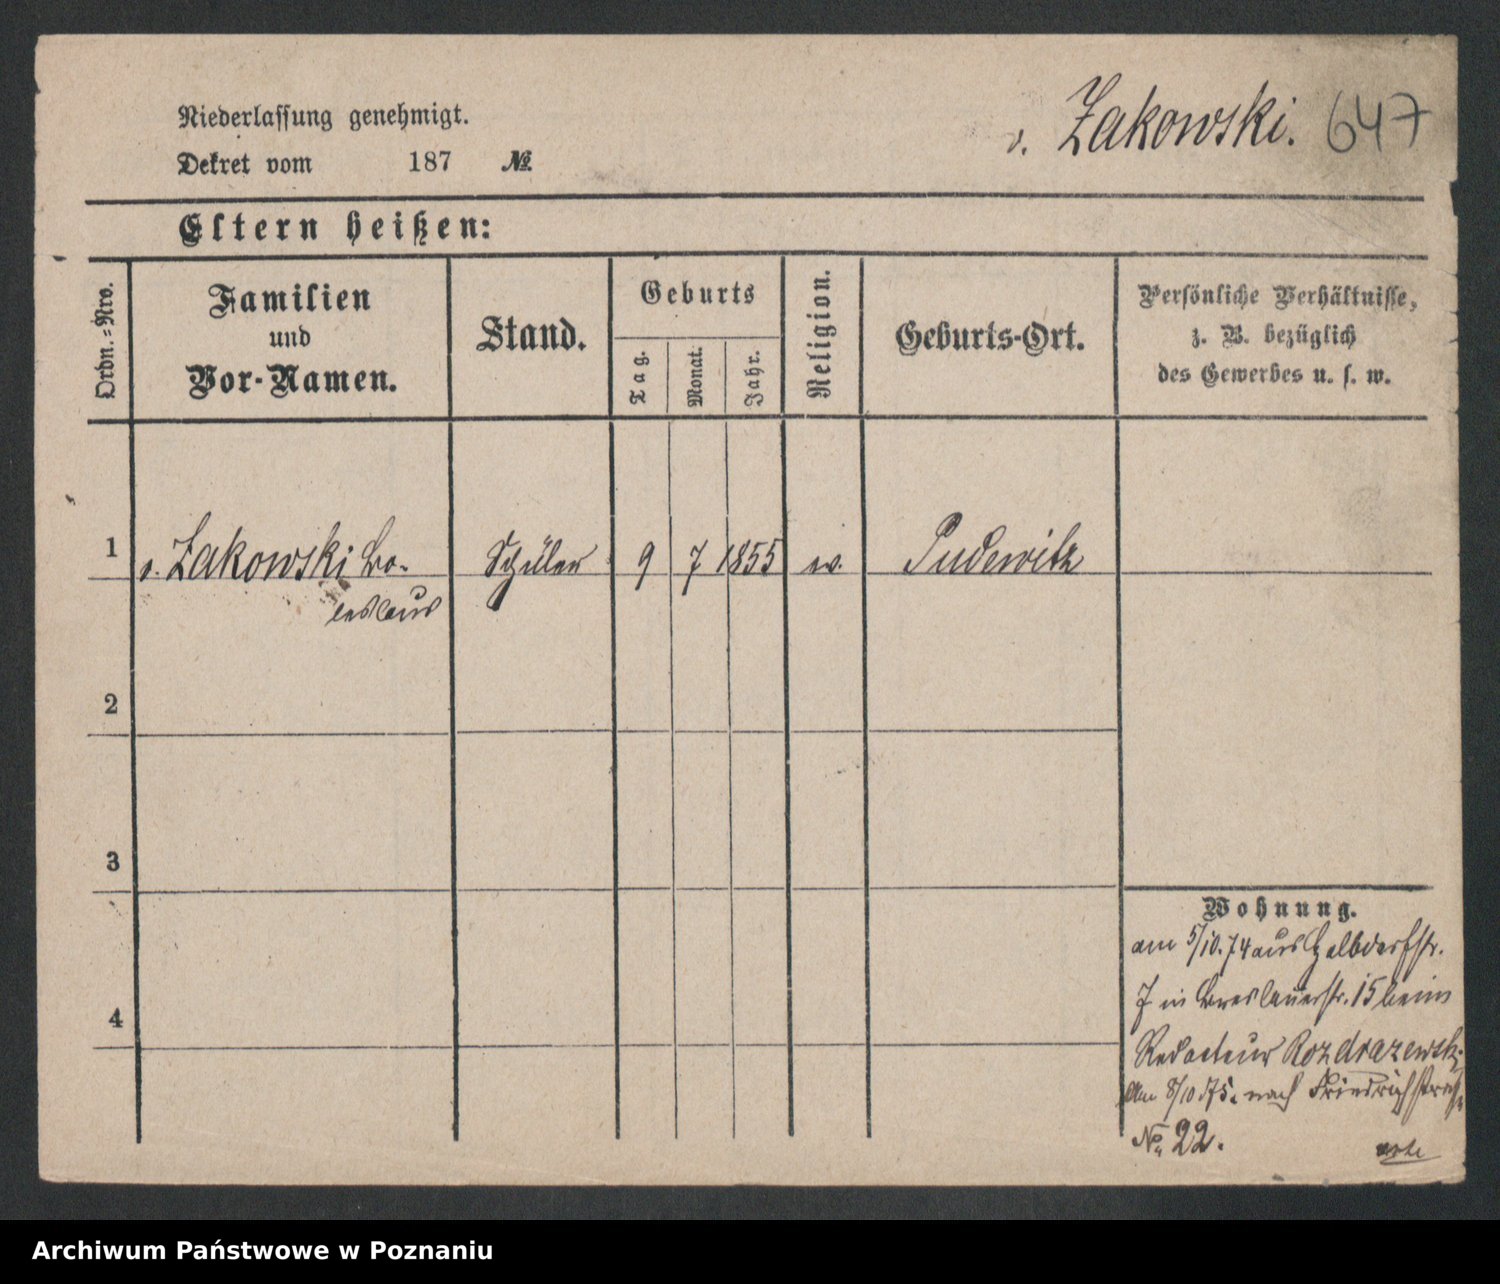 Niederlassung genehmigt.
v. Zakowski. 647
Dekret vom 187 №
Eltern heißen:
Ordn.-Nro.
Familien
und
Vor-Namen.
Stand.
Geburts
Tag.
Monat.
Jahr.
Religion.
Geburts-Ort.
Persönliche Verhältnisse,
z. B. bezüglich
des Gewerbes u. s. w.
1 v. Zakowski Bo- Schüler 9 7 1855 Pudewitz
leslaus
2
3
4
Wohnung.
am 5/10.74 aus Halbdorfstr.
7 in Breslauerstr. 15 beim
Redacteur Rozdrazewski
Am 8/10 75. nach Friedrichstraße
No. 22.
Archiwum Państwowe w Poznaniu